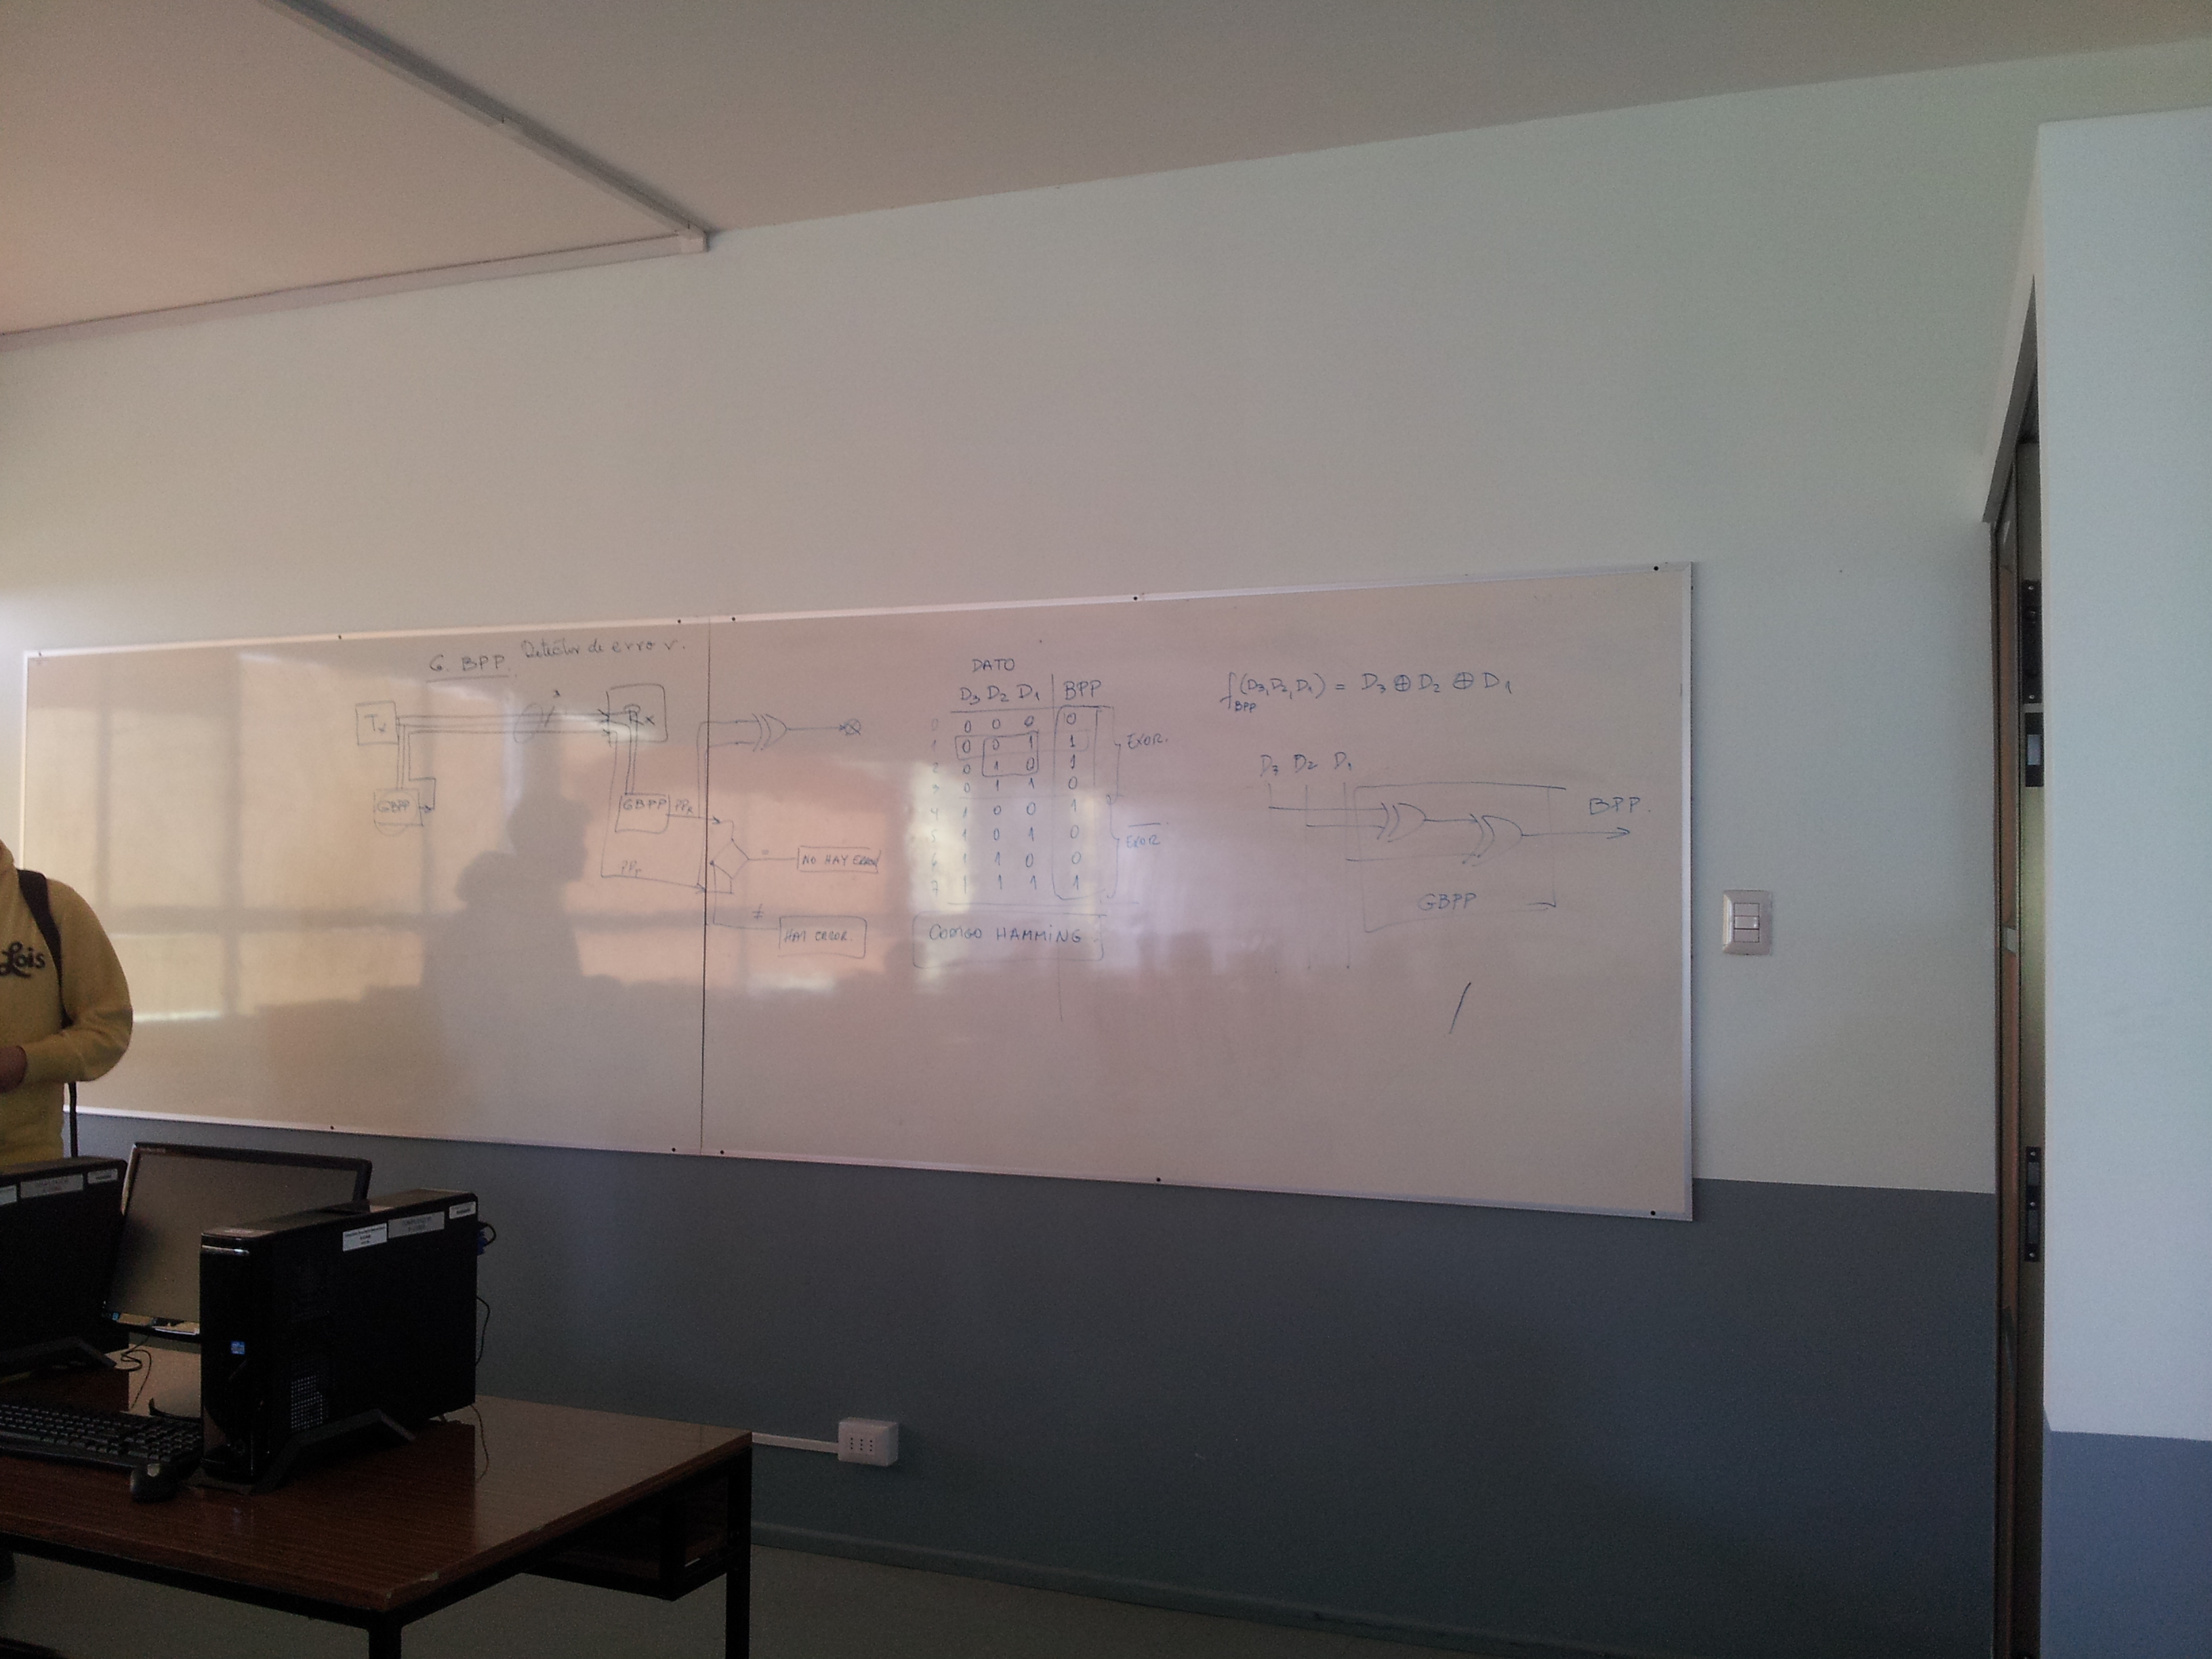 G. BPP. Detector de error.
Tx
Rx
GBPP
GBPP
PPR
PPT
=
NO HAY ERROR
≠
HAY ERROR.
DATO
D3 D2 D1 BPP
0 0 0 0 0
1 0 0 1 1
2 0 1 0 1
3 0 1 1 0
4 1 0 0 1
5 1 0 1 0
6 1 1 0 0
7 1 1 1 1
EXOR.
EXOR
CODIGO HAMMING
fBPP(D3,D2,D1) = D3 ⊕ D2 ⊕ D1
D3 D2 D1
BPP.
GBPP
Lois